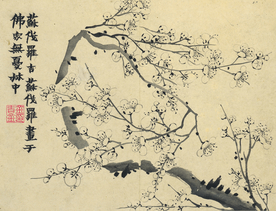 蘇伐羅吉蘇伐羅畫于
佛家無憂林中